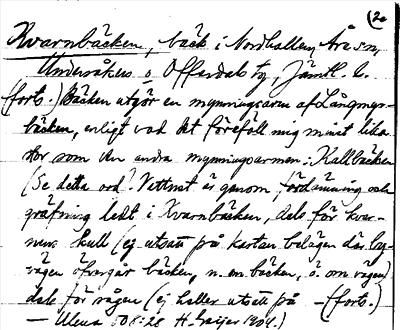 (2a
Kvarnbäcken, bäck i Nordhallen, Åre sn,
Undersåkers o. Offerdals tg, Jämtl. l.
(forts.) Bäcken utgör en mynningsarm af Långmyrbäcken,
enligt vad det föreföll mig minst lika
stor som den andra mynningsarmen: Kallbäcken
(Se detta ord). Vattnet är genom fördämning och
gräfning ledt i Kvarnbäcken, dels för kvarnens
skull (ej utsatt på kartan belägen där byvägen
öfvergår bäcken, n. om bäcken, ö. om vägen)
dels för vägen (ej heller utsatt på – (forts.)
– Ulena 508:28 H. Geijer 1909.)